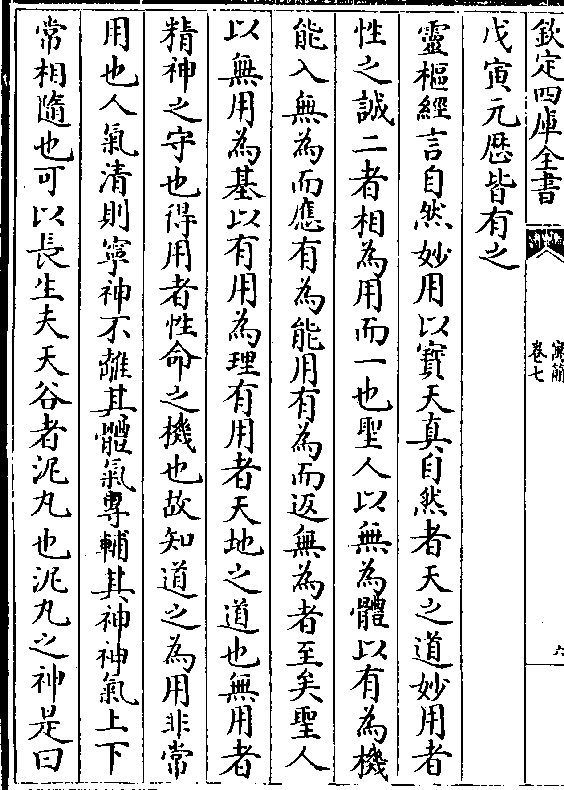 欽定四庫全書
卷七
六
戊寅元歴皆有之
靈樞經言自然妙用以寳天真自然者天之道妙用者
性之誠二者相為用而一也聖人以無為體以有為機
能入無為而應有為能用有為而返無為者至矣聖人
以無用為基以有用為理有用者天地之道也無用者
精神之守也得用者性命之機也故知道之為用非常
用也人氣清則寧神不離其體氣專輔其神神氣上下
常相隨也可以長生夫天谷者泥丸也泥丸之神是曰